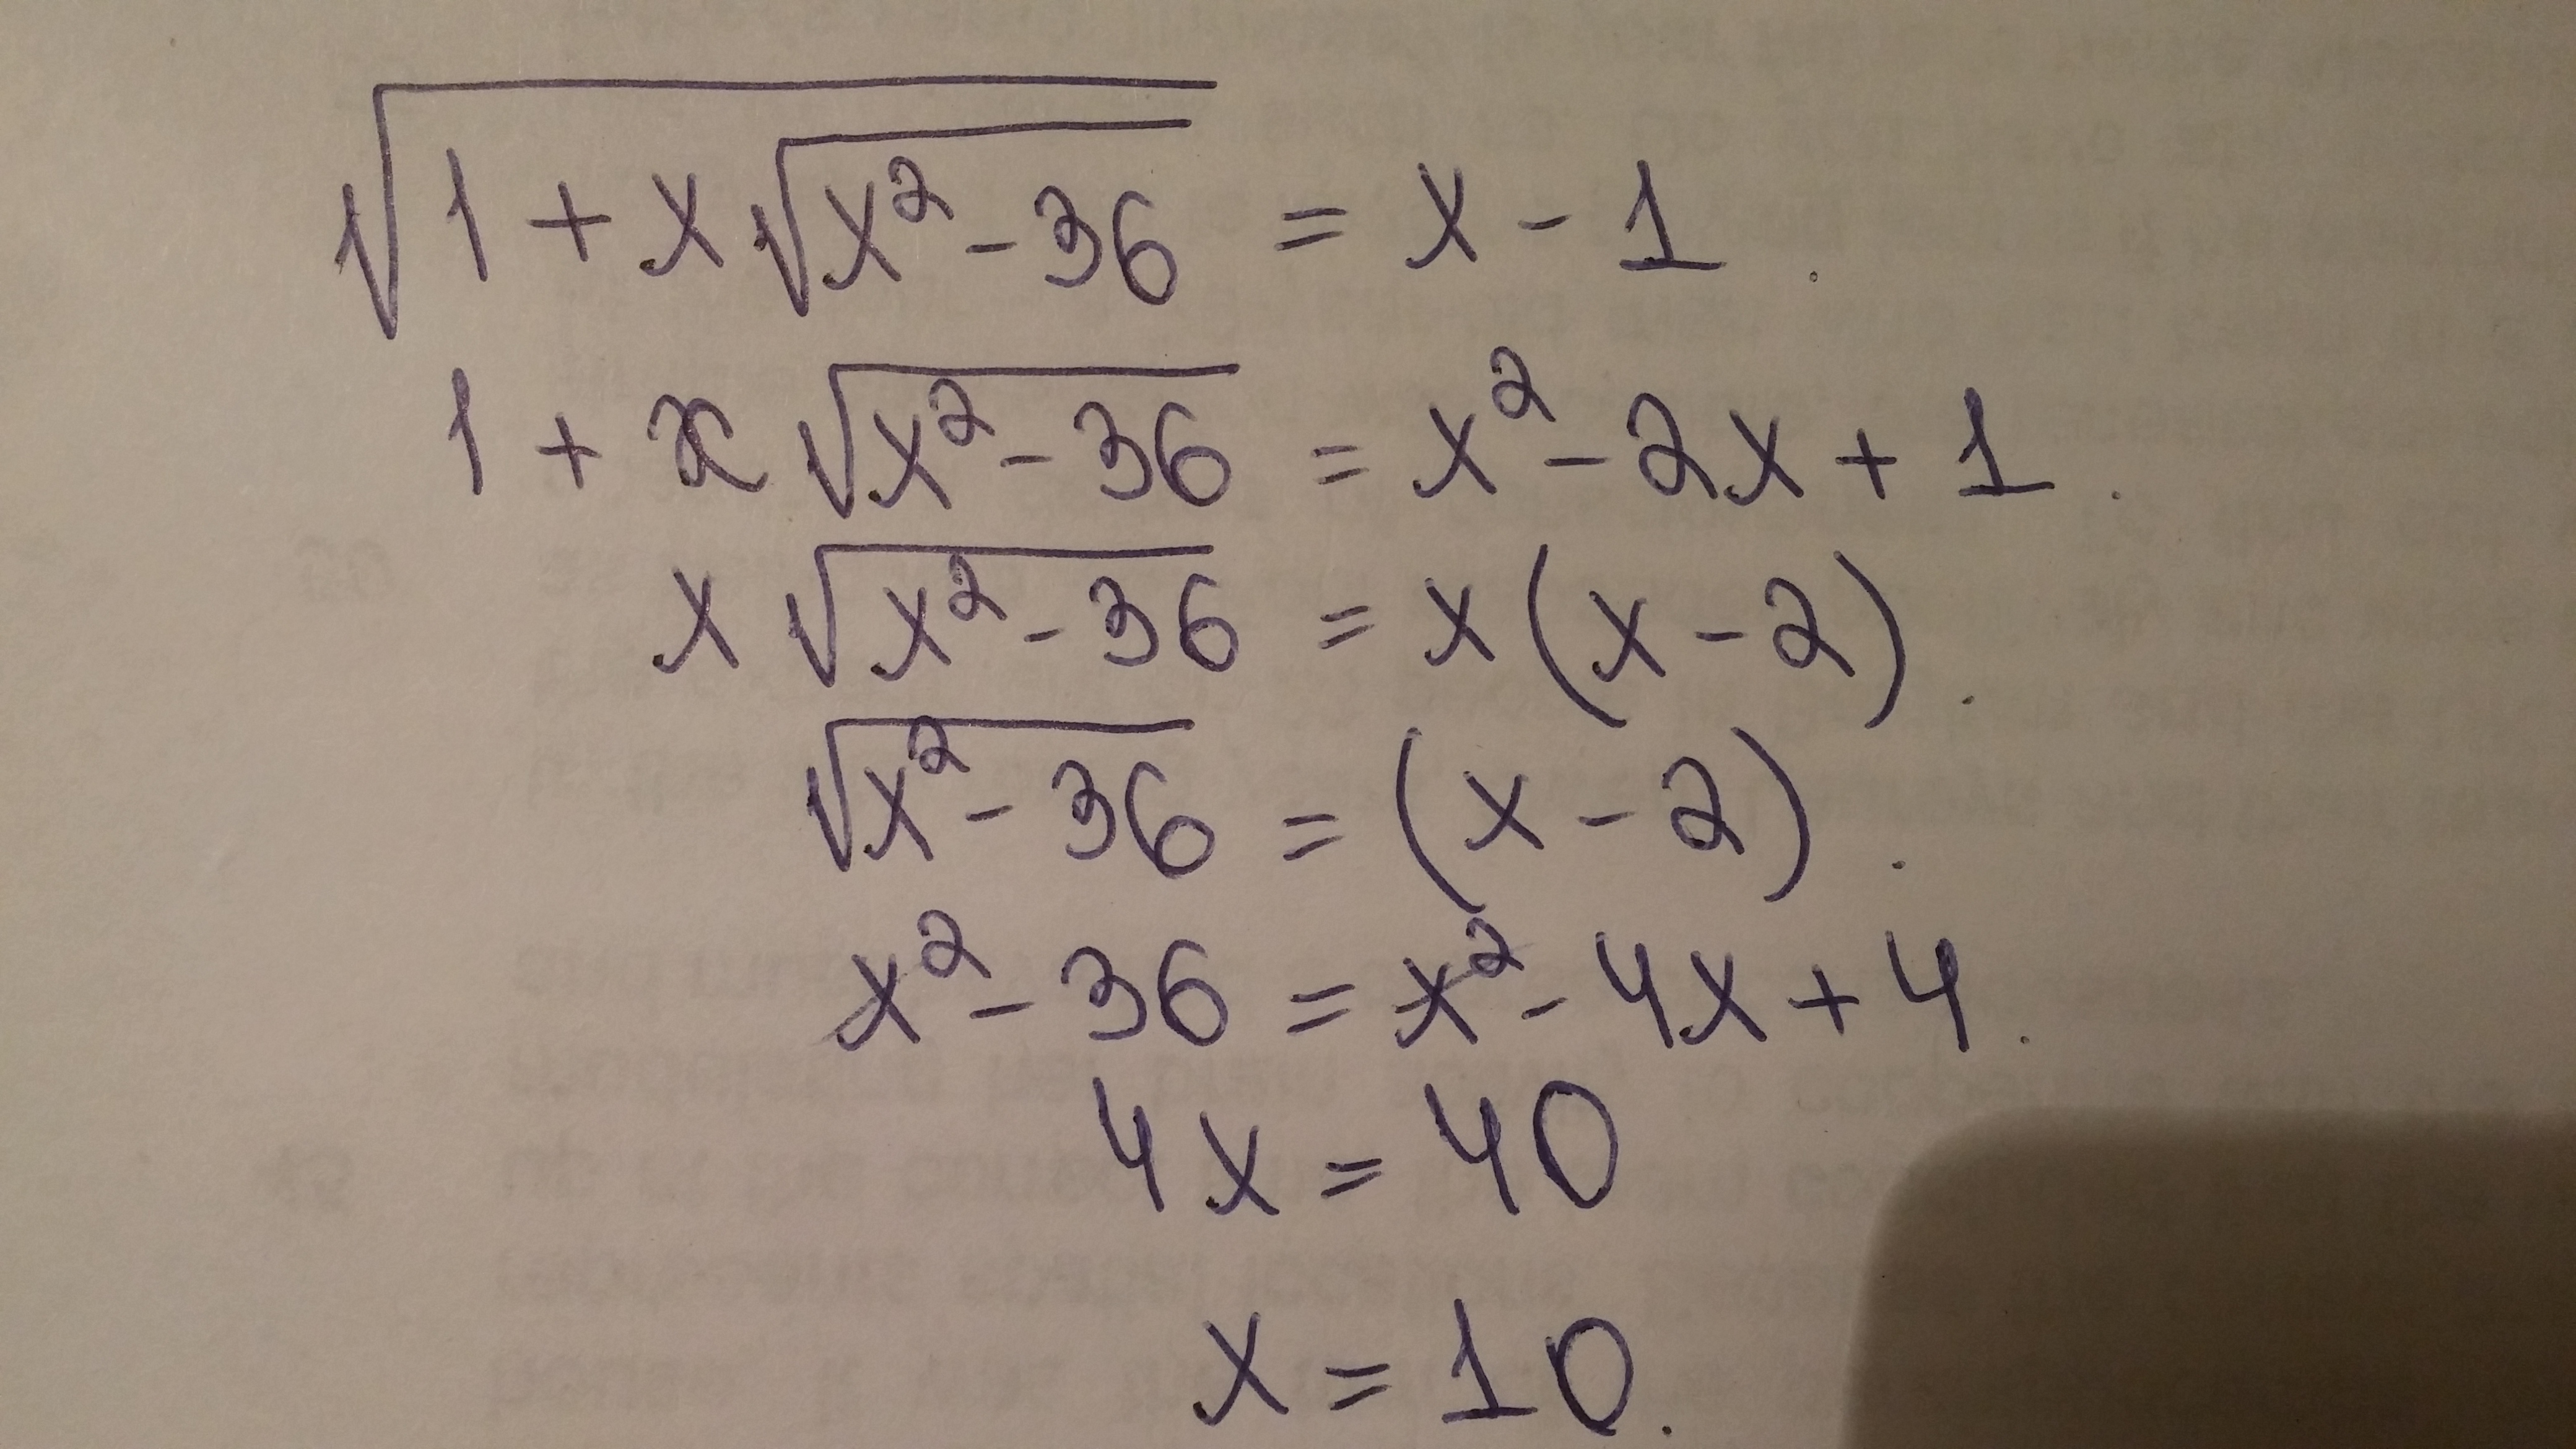 √(1 + x√(x² - 36)) = x - 1.
1 + x√(x² - 36) = x² - 2x + 1.
x√(x² - 36) = x(x - 2).
√(x² - 36) = (x - 2).
x² - 36 = x² - 4x + 4.
4x = 40
x = 10.